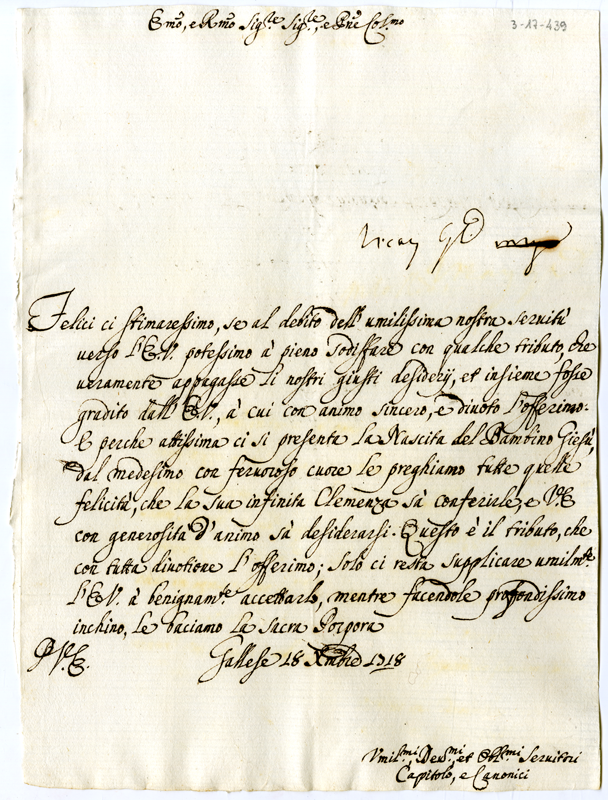 3-17-439
Emo, e Rmo Sigre Sigre, e Pne Colmo
Felici ci stimaressimo, se al debito dell'umilissima nostra servitù
verso l'E.V. potessimo à pieno sodisfare con qualche tributo, che
veramente appagasse li nostri giusti desiderij, et insieme fosse
gradito dall'E.V., à cui con animo sincero, e divoto l'offerimo:
E perche attissima ci si presenta la Nascita del Bambino Giesù,
dal medesimo con fervoroso cuore le preghiamo tutte quelle
felicità, che la sua infinita Clemenza sà conferirle, e V.E.
con generosità d'animo sà desiderarsi. Questo è il tributo, che
con tutta divotione l'offerimo; solo ci resta supplicare umilmte
l'E.V. à benignamte accettarlo, mentre facendole profondissimo
inchino, le baciamo la sacra Porpora
D V.E. Gallese 18 Xmbre 1718
Vmilmi, Devmi, et Obblmi Servitori
Capitolo, e Canonici